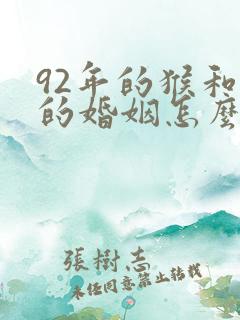 92年的猴和
的婚姻怎麼
張樹志
未经同意禁止转载